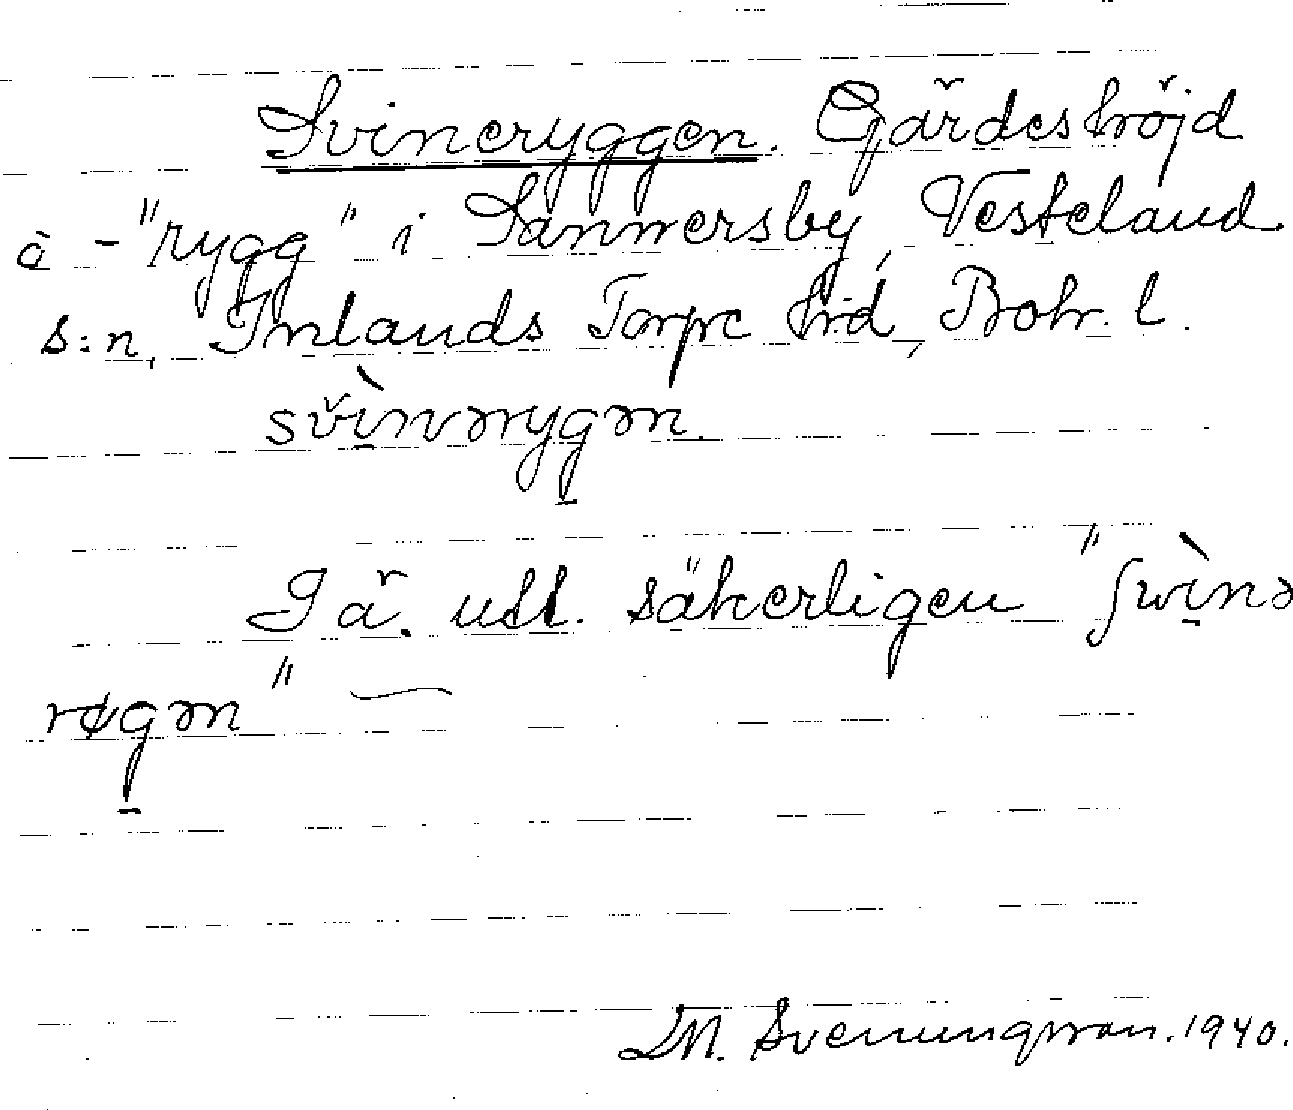 Svineryggen. Gärdeshöjd
à -"rygg" i Sannersby, Vesteland
s:n, Inlands Torpe hd, Bohr. l.
svìnərygən.
Gä. utt. säkerligen "ʃwìnə
røgən" ~
M. Svenungsson. 1940.